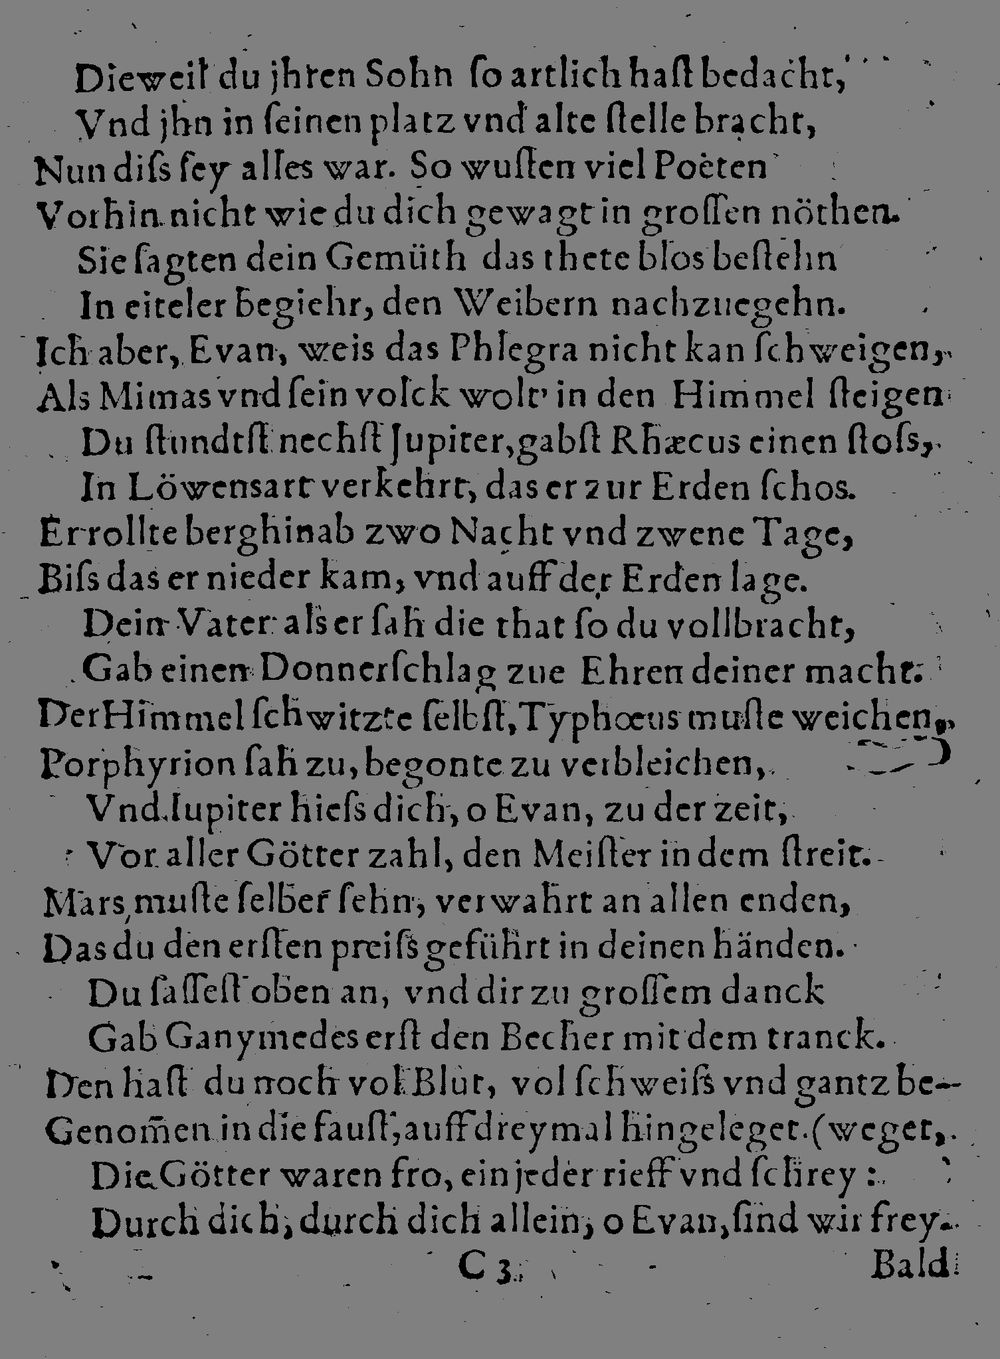 Dieweil du jhren Sohn ſo artlich haſt bedacht,
Vnd jhn in ſeinen platz vnd alte ſtelle bracht,
Nun diſs ſey alles war. So wuſten viel Poëten
Vorhin nicht wie du dich gewagt in groſſen nöthen.
Sie ſagten dein Gemüth das thete blos beſtehn
In eiteler begiehr, den Weibern nachzuegehn.
Ich aber, Evan, weis das Phlegra nicht kan ſchweigen,
Als Mimas vnd ſein volck wolt' in den Himmel ſteigen
Du ſtundtſt nechſt Jupiter, gabſt Rhæcus einen ſtoſs,
In Löwensart verkehrt, das er zur Erden ſchos.
Er rollte berghinab zwo Nacht vnd zwene Tage,
Biſs das er nieder kam, vnd auff der Erden lage.
Dein Vater als er ſah die that ſo du vollbracht,
Gab einen Donnerſchlag zue Ehren deiner macht.
Der Himmel ſchwitzte ſelbſt, Typhœus muſte weichen,
Porphyrion ſah zu, begonte zu verbleichen,
Vnd Iupiter hieſs dich, o Evan, zu der zeit,
Vor aller Götter zahl, den Meiſter in dem ſtreit.
Mars muſte ſelber ſehn, verwahrt an allen enden,
Das du den erſten preiſs geführt in deinen händen.
Du ſaſſeſt oben an, vnd dir zu groſſem danck
Gab Ganymedes erſt den Becher mit dem tranck.
Den haſt du noch vol Blut, vol ſchweiſs vnd gantz be-
Genom̃en in die fauſt, auff dreymal hingeleget. (weget,
Die Götter waren fro, ein jeder rieff vnd ſchrey:
Durch dich, durch dich allein, o Evan, ſind wir frey.
C 3
Bald